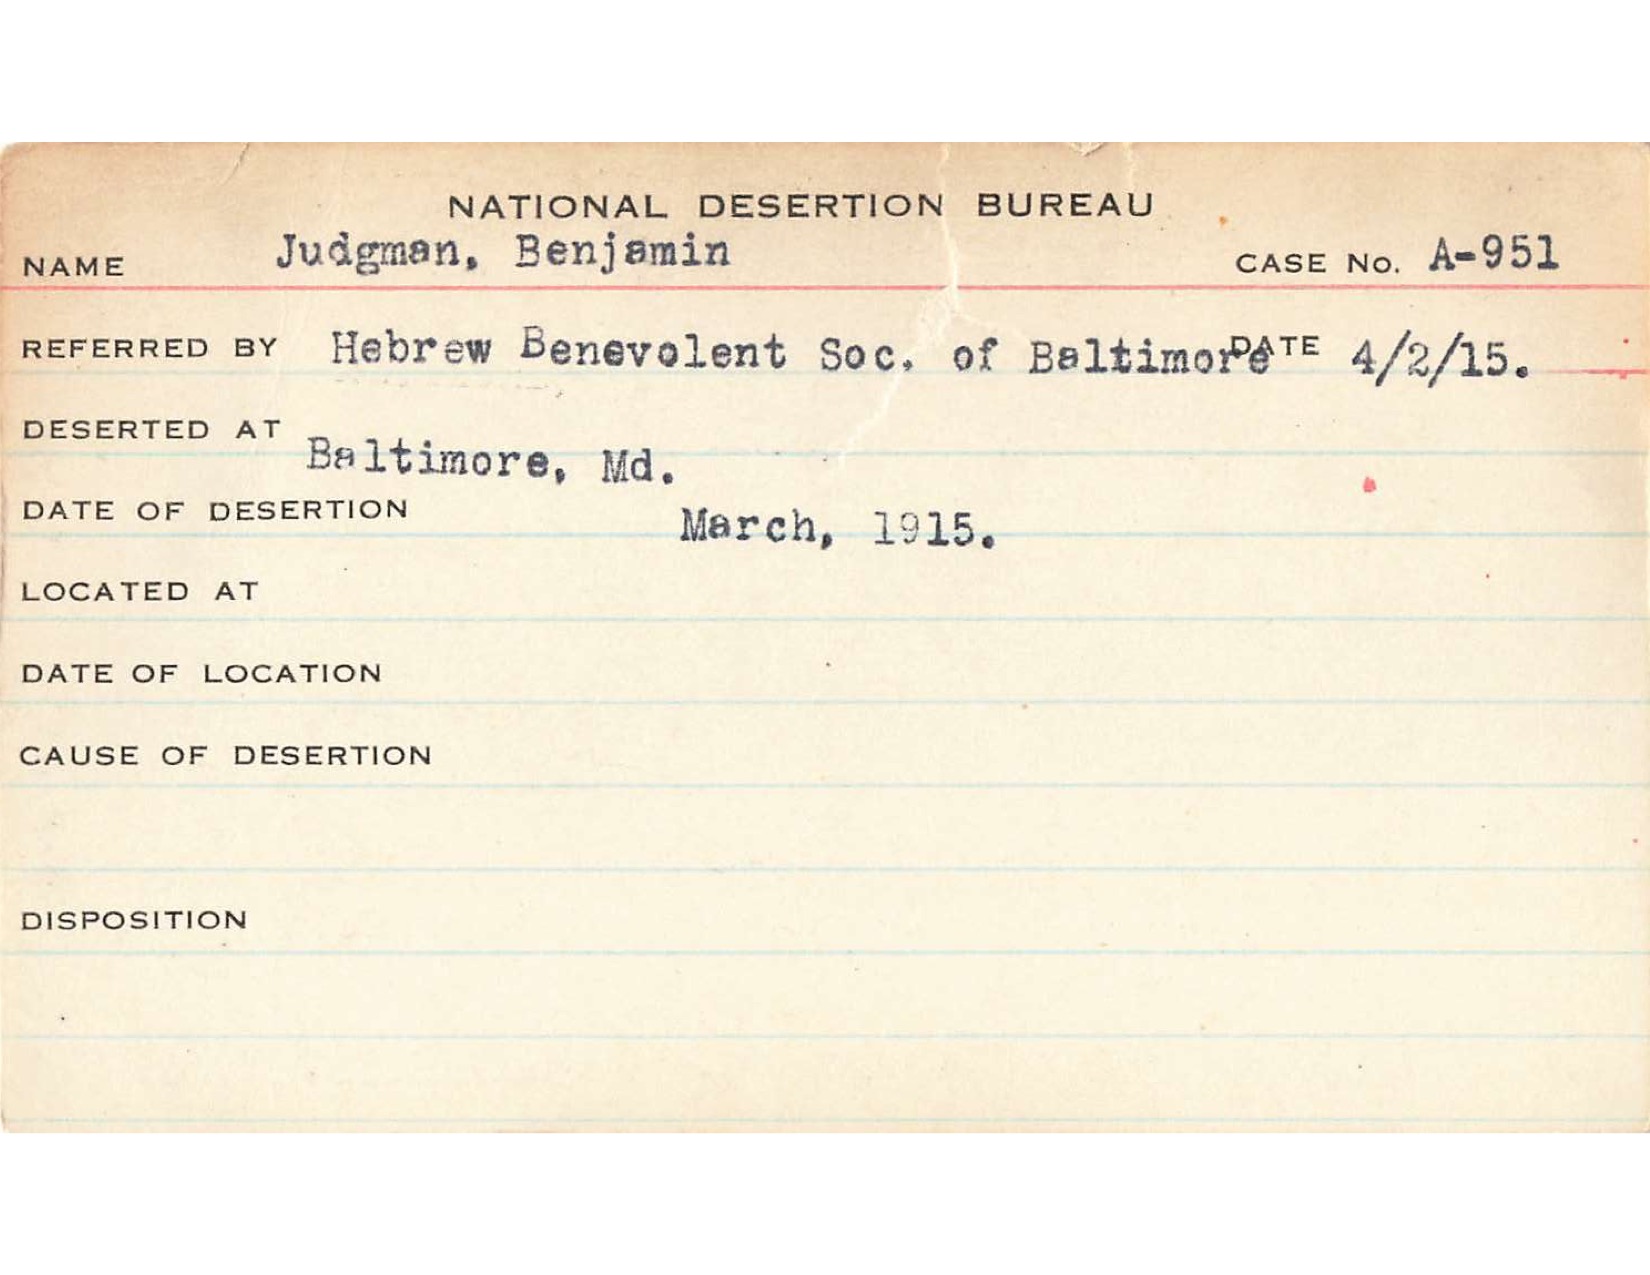 NATIONAL DESERTION BUREAU
NAME Judgman, Benjamin CASE No. A-951
REFERRED BY Hebrew Benevolent Soc. of Baltimore DATE 4/2/15.
DESERTED AT Baltimore, Md.
DATE OF DESERTION March, 1915.
LOCATED AT
DATE OF LOCATION
CAUSE OF DESERTION
DISPOSITION